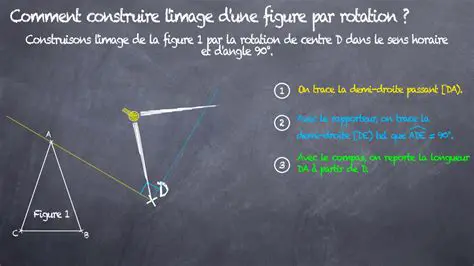 Comment construire l'image d'une figure par rotation ?
Construisons l'image de la figure 1 par la rotation de centre D dans le sens horaire
et d'angle 90°.
1 On trace la demi-droite passant [DA).
2 Avec le rapporteur, on trace la
demi-droite [DE) tel que ADE = 90°.
3 Avec le compas, on reporte la longueur
DA à partir de D.
A
D
Figure 1
C B